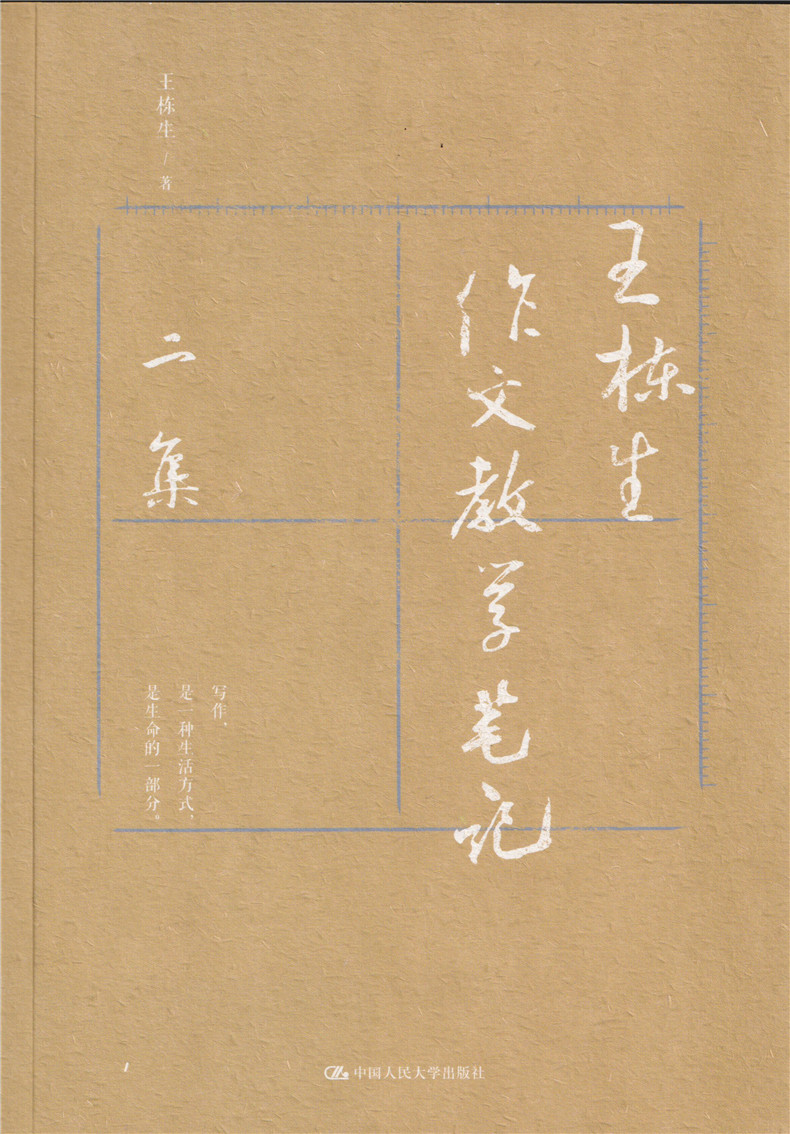 王栋生
作文教学笔记
二集
王栋生/著
写作，
是一种生活方式，
是生命的一部分。
中国人民大学出版社